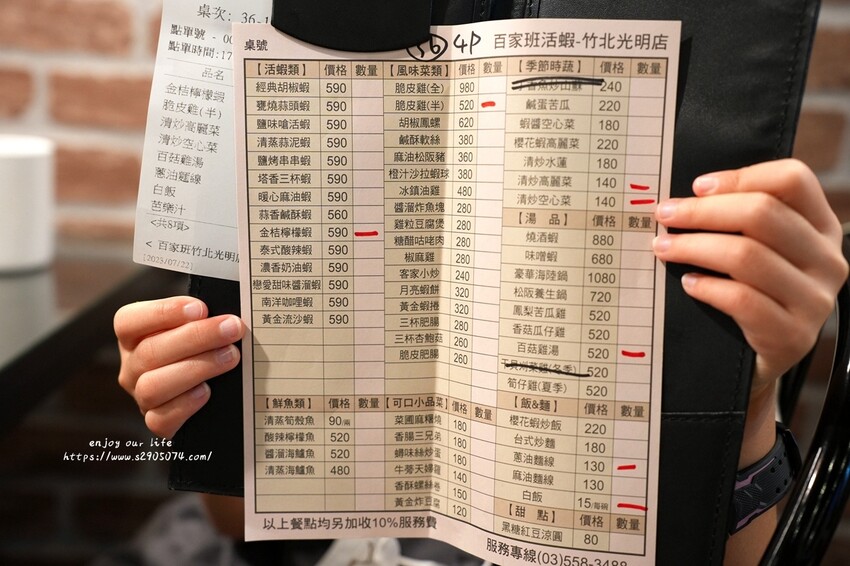 桌次: 36-1
點單號 - 00
點單時間:17
品名
金桔檸檬蝦
脆皮雞(半)
清炒高麗菜
清炒空心菜
百菇雞湯
蔥油麵線
白飯
芭樂汁
<共8項>
< 百家班竹北光明店
[2023/07/22]
桌號 36 4P 百家班活蝦-竹北光明店
【活蝦類】 價格 數量
經典胡椒蝦 590
甕燒蒜頭蝦 590
鹽味嗆活蝦 590
清蒸蒜泥蝦 590
鹽烤串串蝦 590
塔香三杯蝦 590
暖心麻油蝦 590
蒜香鹹酥蝦 560
金桔檸檬蝦 590
泰式酸辣蝦 590
濃香奶油蝦 590
戀愛甜味醬溜蝦 590
南洋咖哩蝦 590
黃金流沙蝦 590
【鮮魚類】 價格 數量
清蒸筍殼魚 90/兩
酸辣檸檬魚 520
醬溜海鱸魚 520
清蒸海鱸魚 480
【風味菜類】 價格 數量
脆皮雞(全) 980
脆皮雞(半) 520
胡椒鳳螺 620
鹹酥軟絲 380
麻油松阪豬 360
橙汁沙拉蝦球 380
冰鎮油雞 480
醬溜炸魚塊 280
雞粒豆腐煲 280
糖醋咕咾肉 280
椒麻雞 280
客家小炒 240
月亮蝦餅 320
黃金蝦捲 320
三杯肥腸 280
三杯杏鮑菇 260
脆皮肥腸 260
【可口小品菜】 價格 數量
菜圃麻糬燒 180
香腸三兄弟 180
蟳味絲炒蛋 180
牛蒡天婦羅 140
香酥螺絲卷 150
黃金炸豆腐 120
【季節時蔬】 價格 數量
240
鹹蛋苦瓜 220
蝦醬空心菜 180
櫻花蝦高麗菜 220
清炒水蓮 180
清炒高麗菜 140
清炒空心菜 140
【湯 品】 價格 數量
燒酒蝦 880
味噌蝦 680
豪華海陸鍋 1080
松阪養生鍋 720
鳳梨苦瓜雞 520
香菇瓜仔雞 520
百菇雞湯 520
520
筍仔雞(夏季) 520
【飯&麵】 價格 數量
櫻花蝦炒飯 220
台式炒麵 180
蔥油麵線 130
麻油麵線 130
白飯 15/每碗
【甜 點】 價格 數量
黑糖紅豆涼圓 80
以上餐點均另加收10%服務費
服務專線(03)558-3488
enjoy our life
https://www.s2905074.com/